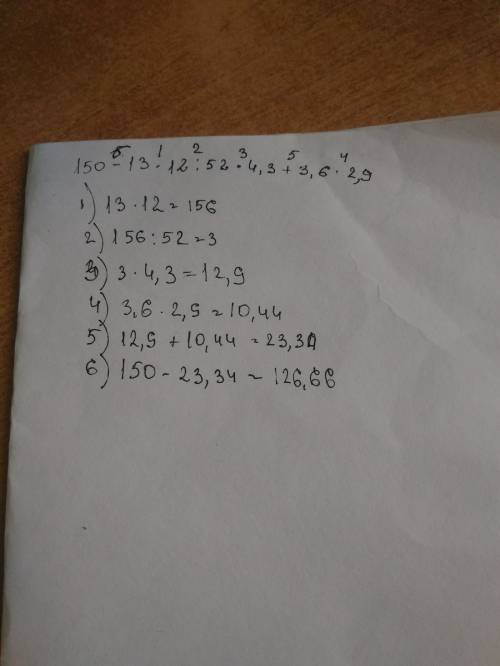 5 1 2 3 5 4
150 - 13 · 12 : 52 · 4,3 + 3,6 · 2,9
1) 13 · 12 = 156
2) 156 : 52 = 3
3) 3 · 4,3 = 12,9
4) 3,6 · 2,9 = 10,44
5) 12,9 + 10,44 = 23,34
6) 150 - 23,34 = 126,66